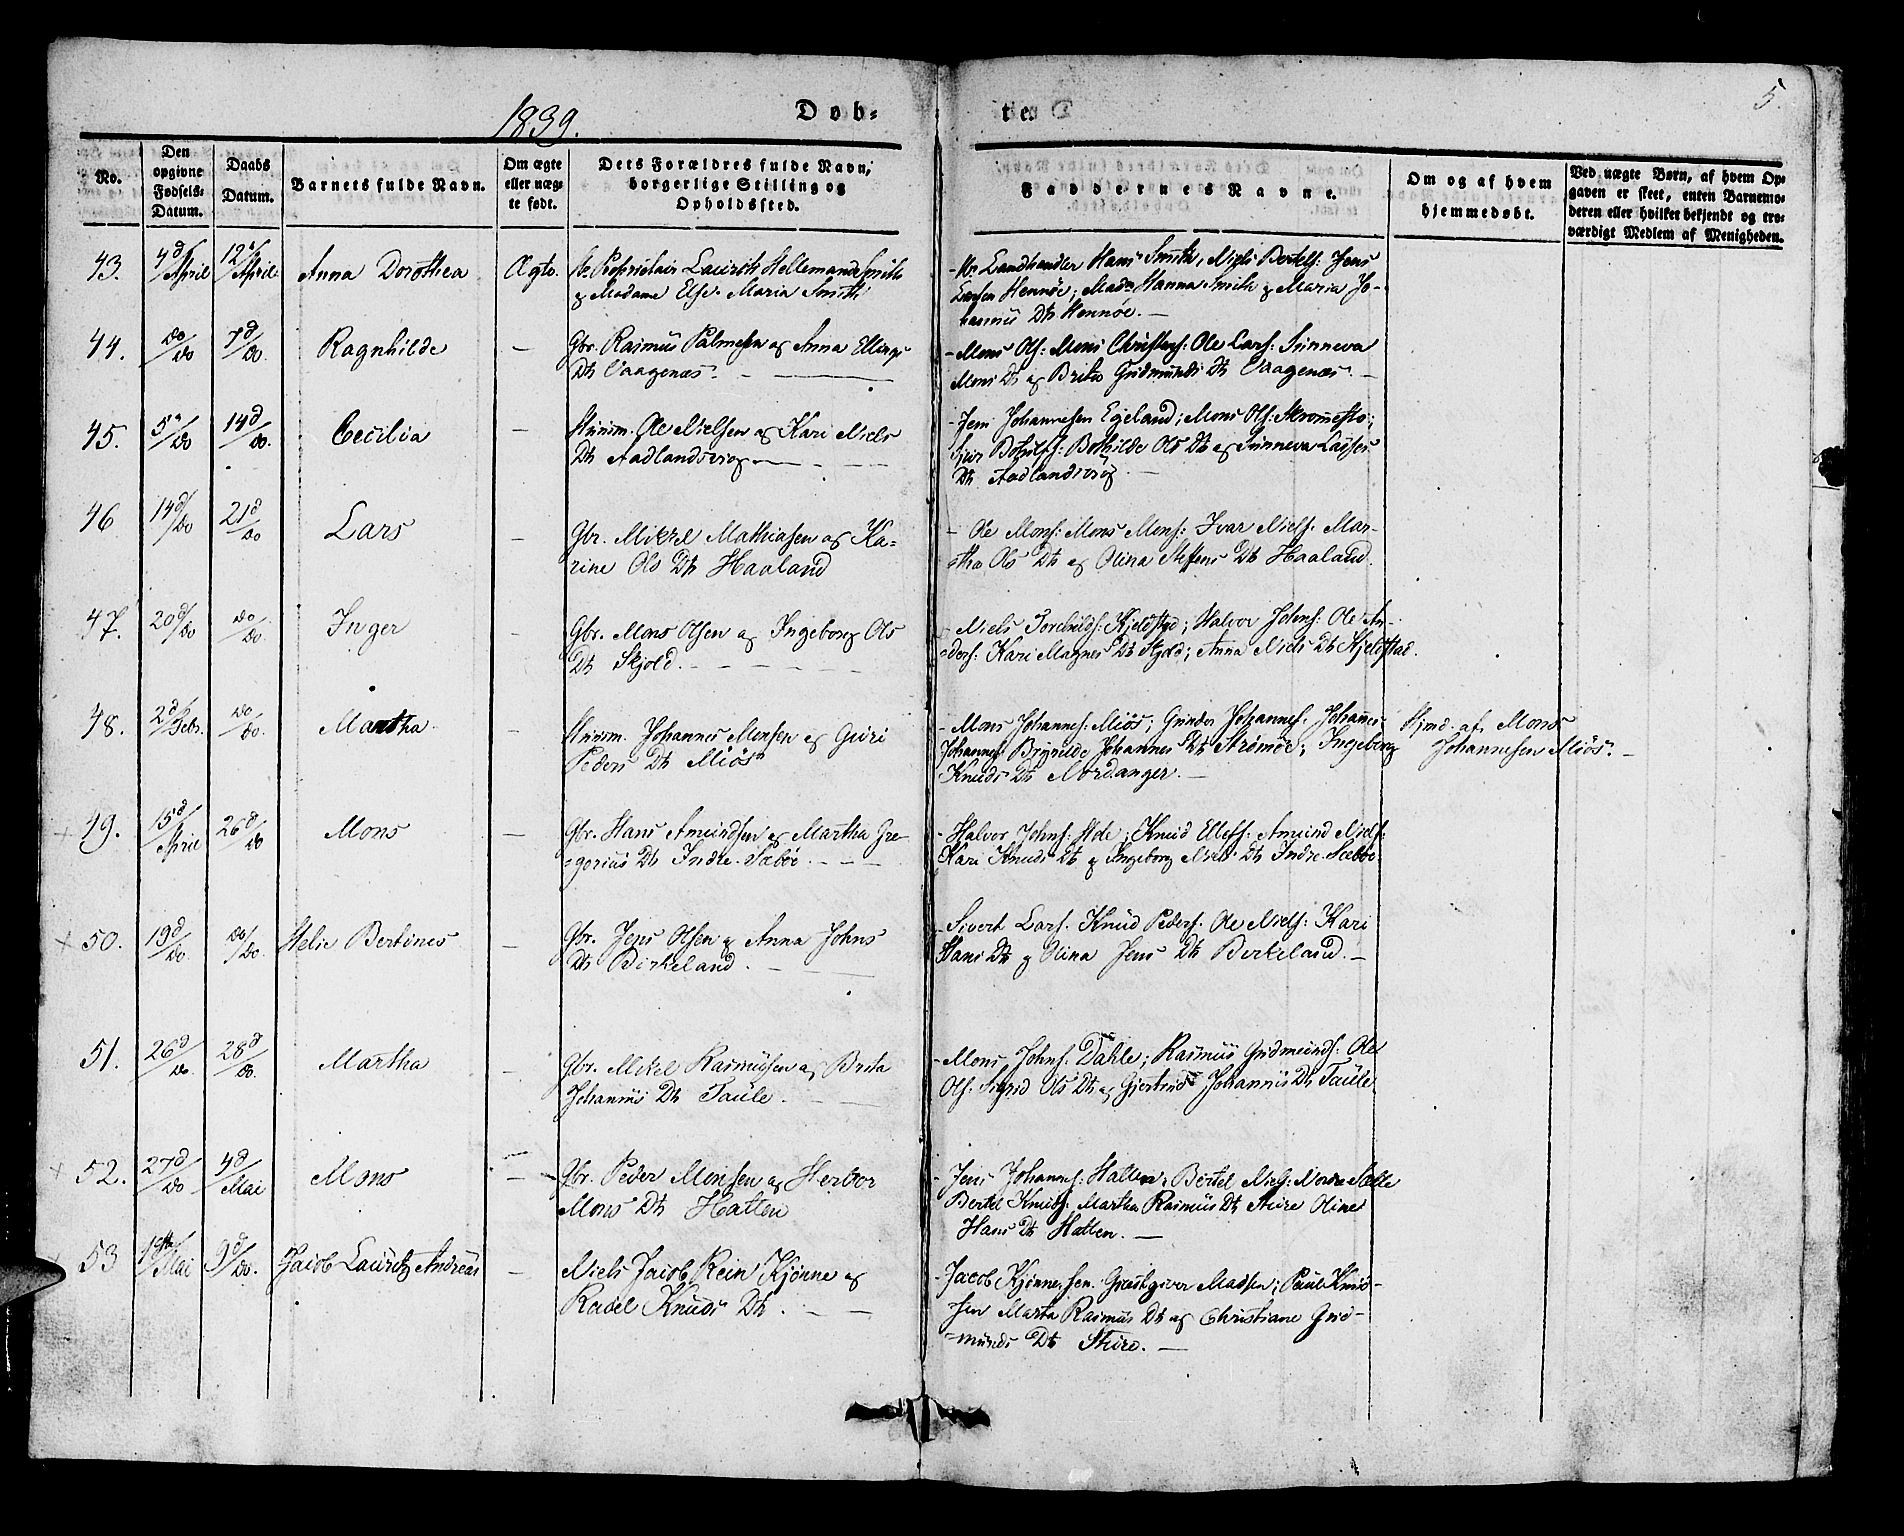 1839.
Døb-
te.
5.
No.
Den opgivne Fødsels-Datum.
Daabs Datum.
Barnets fulde Navn.
Om ægte eller uægte født.
Dets Forældres fulde Navn, borgerlige Stilling og Opholdssted.
Faddernes Navne.
Om og af hvem hjemmedøbt.
Ved uægte Børn, af hvem Opgaven er skeet, enten Barnemoderen eller hvilket bekjendt og troværdigt Medlem af Menigheden.
43. 4d/April 12/April Anna Dorothea Ægte. Hr. Proprietair Laurits Hellemand Smith
& Madame Else Maria Smith
- Hr. Landhandler Hans Smith, Niels Bertels: Jens
Larsen Hennøe; Mad. Hanna Smith & Maria Jo-
hannis Dtr Hennøe. —
44. do/do 7d/do. Ragnhilde — Gbr. Rasmus Palmesen og Anna Ellings
Dtr Vaagenæs. —
- Mons Ols: Mons Christens: Ole Lars: Sunneva
Mons Dtr og Brita Gudmunds Dtr Vaagenæs. —
45. 5/do 14d/do. Cecilia — Huusm. Ole Nielsen og Kari Niels
Dtr Aadlandsvig —
- Jens Johannesen Egeland; Mons Ols: Skromesto;
Siur Botulfs: Bothilde Ols Dtr og Sunneva Lasses
Dtr Aadlandsvig —
46 14d/do 21d/do Lars — Gbr. Mikkel Mathiasen og Ka-
rine Ols Dtr Haaland
- Ole Mons: Mons Mons: Ivar Niels: Mar-
tha Ols Dtr og Olina Steffens Dtr Haaland.
47. 20d/do do/do. Inger — Gbr. Mons Olsen og Ingeborg Ols
Dtr Skjold. —
- Niels Torchilds: Kjeldstad; Halvor Johns: Ole An-
ders: Kari Magnes Dtr Skjold; Anna Niels Dtr Kjeldstad.
48. 2d/Febr. do/do. Martha. — Huusm. Johannes Monsen og Guri
Peders Dtr Miøs
- Mons Johannes: Miøs; Gunder Johannes: Johannes
Johannes: Brynilde Johannes Dtr Strømøe; Ingeborg
Knuds Dtr Nordanger. —
Hjmd. af Mons
Johannesen Miøs. —
49. 15d/April 26d/do Mons — Gbr. Hans Amundsen og Martha Gre-
gorius Dtr Indre Sæbøe. —
- Halvor Johns: Hde; Knud Ellefs: Amund Niels:
Kari Knuds Dtr & Ingeborg Niels Dtr Indre Sæbøe.
50. 19d/do do/do. Helie Bertines — Gbr. Jens Olsen & Anna Johns
Dtr Birkeland. —
- Sivert Lars: Knud Peders: Ole Niels: Kari
Hans Dtr & Olina Jens Dtr Birkeland. —
51. 26d/do. 28d/do. Martha — Gbr. Mikel Rasmussen og Brita
Johannis Dtr Taule. —
- Mons Johns: Dahle; Rasmus Gudmunds: Ole
Ols: Sigrid Ols Dtr og Gjertrud Johannis Dtr Taule
52. 27d/do 4d/Mai Mons — Gbr. Peder Monsen og Herbor
Mons Dtr Hatten
- Jens Johannes: Hatten, Bertel Niels: Nordre Sælle
Bertel Knuds: Martha Rasmus Dtr Sture Oline
Hans Dtr Hatten. —
53 1ste/Mai 9d/do. Jacob Lauritz Andreas — Niels Jacob Rein Kjønne og
Radel Knuds Dtr. —
- Jacob Kjønnesen. Gæstgiver Madsen; Paul Knud-
sen Marta Rasmus Dtr og Christiane Gud-
munds Dtr Sture. —